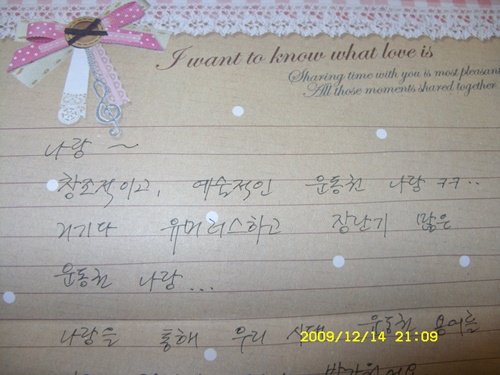 I want to know what love is
Sharing time with you is most pleasant
All those moments shared together
나랑 ~
창조적이고, 예술적인 운동친 나랑 ㅋㅋ..
거기다 유머러스하고 장난기 많은
운동친 나랑...
나랑을 통해 우리 시대
2009/12/14 21:09